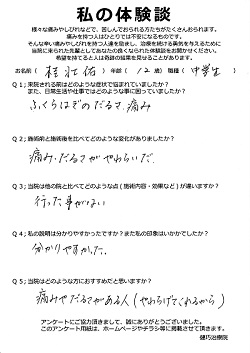 私の体験談
様々な痛みやしびれなどで、苦しんでおられる方たちがたくさんおられます。
痛みを持つ人はひとりでは不安になるものです。
そんな辛い痛みやしびれを持つ人達を励まし、治療を続ける勇気を与えるために
当院に来られた先輩としてあなたの良くなられた体験談をお聞かせください。
希望を持てると人は奇跡の結果を見せることがあります。
お名前( 桂 壮佑 )年齢( 12歳 )職種( 中学生 )
Q1;来院される前はどのような症状で悩まれていましたか?
また、日常生活や仕事ではどのような事に困っていましたか?
ふくらはぎのだるさ、痛み
Q2;施術前と施術後を比べてどのような変化がありましたか?
痛み、だるさがやわらいだ。
Q3;当院は他の院と比べてどのような点(施術内容・効果など)が違いますか?
行った事がない
Q4;私の説明は分かりやすかったですか?また私の印象はいかがでしたか?
分かりやすかった。
Q5;当院はどのような方におすすめだと思いますか?
痛みやだるさがある人(やわらげてくれるから)
アンケートにご協力頂きまして、誠にありがとうございました。
このアンケート用紙は、ホームページやチラシ等に掲載させて頂きます。
健巧治療院